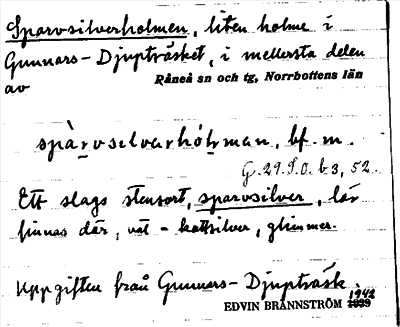 Sparvsilverholmen, liten holme i
Gunnars-Djupträsket, i mellersta delen
av
Råneå sn och tg, Norrbottens län
spàrvselvarhólman, bf. m.
G. 29. S.O. b 3, 52
Ett slags stensort, sparvsilver, lär
finnas där, väl - kattsilver, glimmer.
Uppgiften från Gunnars-Djupträsk.
1942
EDVIN BRÄNNSTRÖM 1939